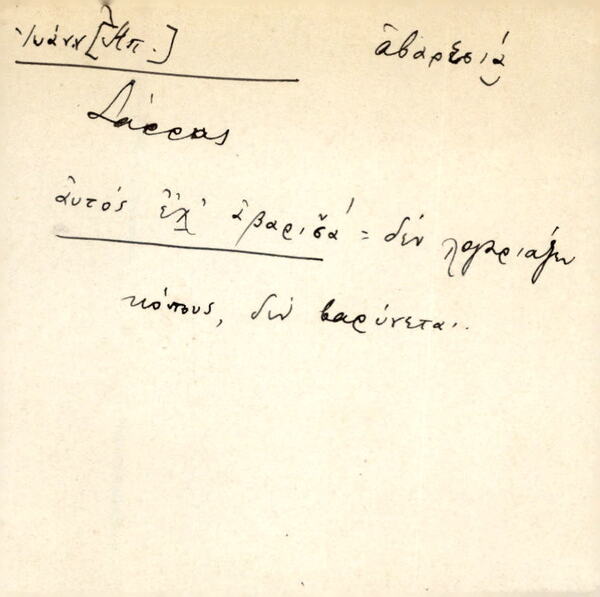 Ἰωάνν[Ἠπ.] ἀβαρεσιά
Σάρρας
αὐτὸς ἔχ' ἀβαρισ̌ά = δέν λογαριάζει
κόπους, δέν βαρύνεται.